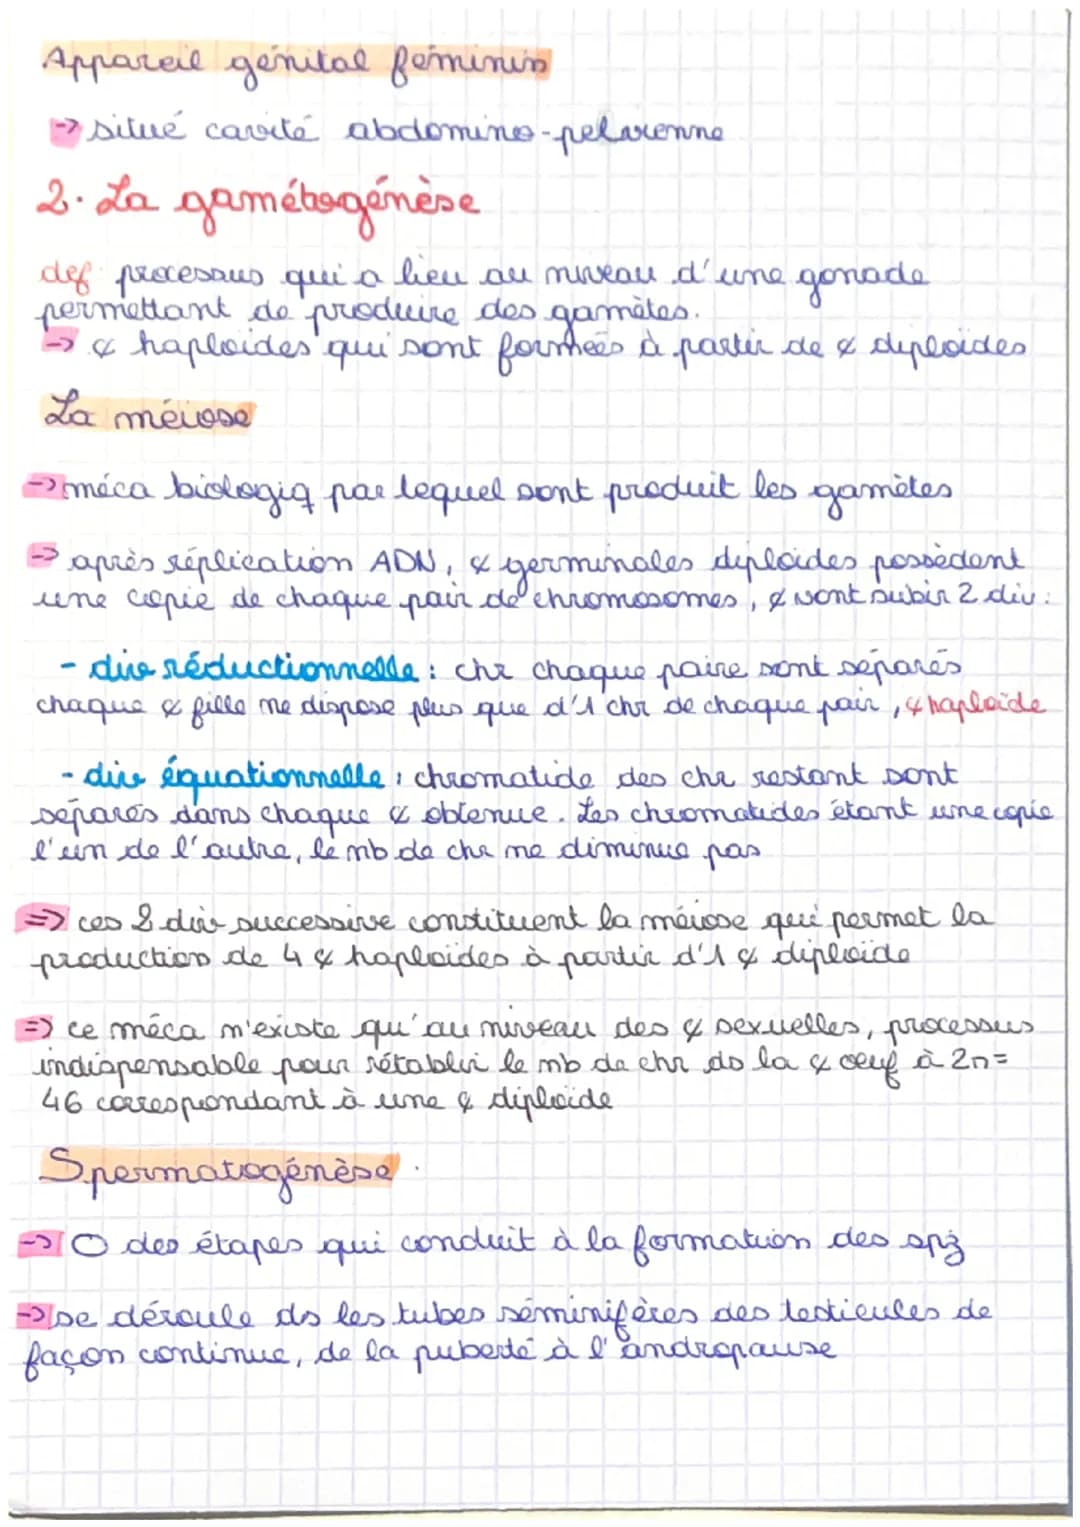 Appareil génital féminin
-> situé cavité abdomino-pelvienne
2. La gamétogénèse
def: processus qui a lieu au niveau d'une gonade
permettant de produire des gamètes.
-> ¢ haploïdes qui sont formées à partir de ¢ diploïdes
La méiose
-> méca biologiq par lequel sont produit les gamètes
-> après réplication ADN, ¢ germinales diploïdes possèdent
une copie de chaque pair de chromosomes, ¢ vont subir 2 div:
- div réductionnelle: chr chaque paire sont séparés
chaque ¢ fille ne dispose plus que d'1 chr de chaque pair, ¢ haploïde
- div équationnelle: chromatide des chr restant sont
séparés dans chaque ¢ obtenue. Les chromatides étant une copie
l'un de l'autre, le nb de chr ne diminue pas
=> ces 2 div successive constituent la méiose qui permet la
production de 4 ¢ haploïdes à partir d'1 ¢ diploïde
=> ce méca n'existe qu'au niveau des ¢ sexuelles, processus
indispensable pour rétablir le nb de chr ds la ¢ oeuf à 2n=
46 correspondant à une ¢ diploïde
Spermatogénèse
-> O des étapes qui conduit à la formation des spz
-> se déroule ds les tubes séminifères des testicules de
façon continue, de la puberté à l'andropause